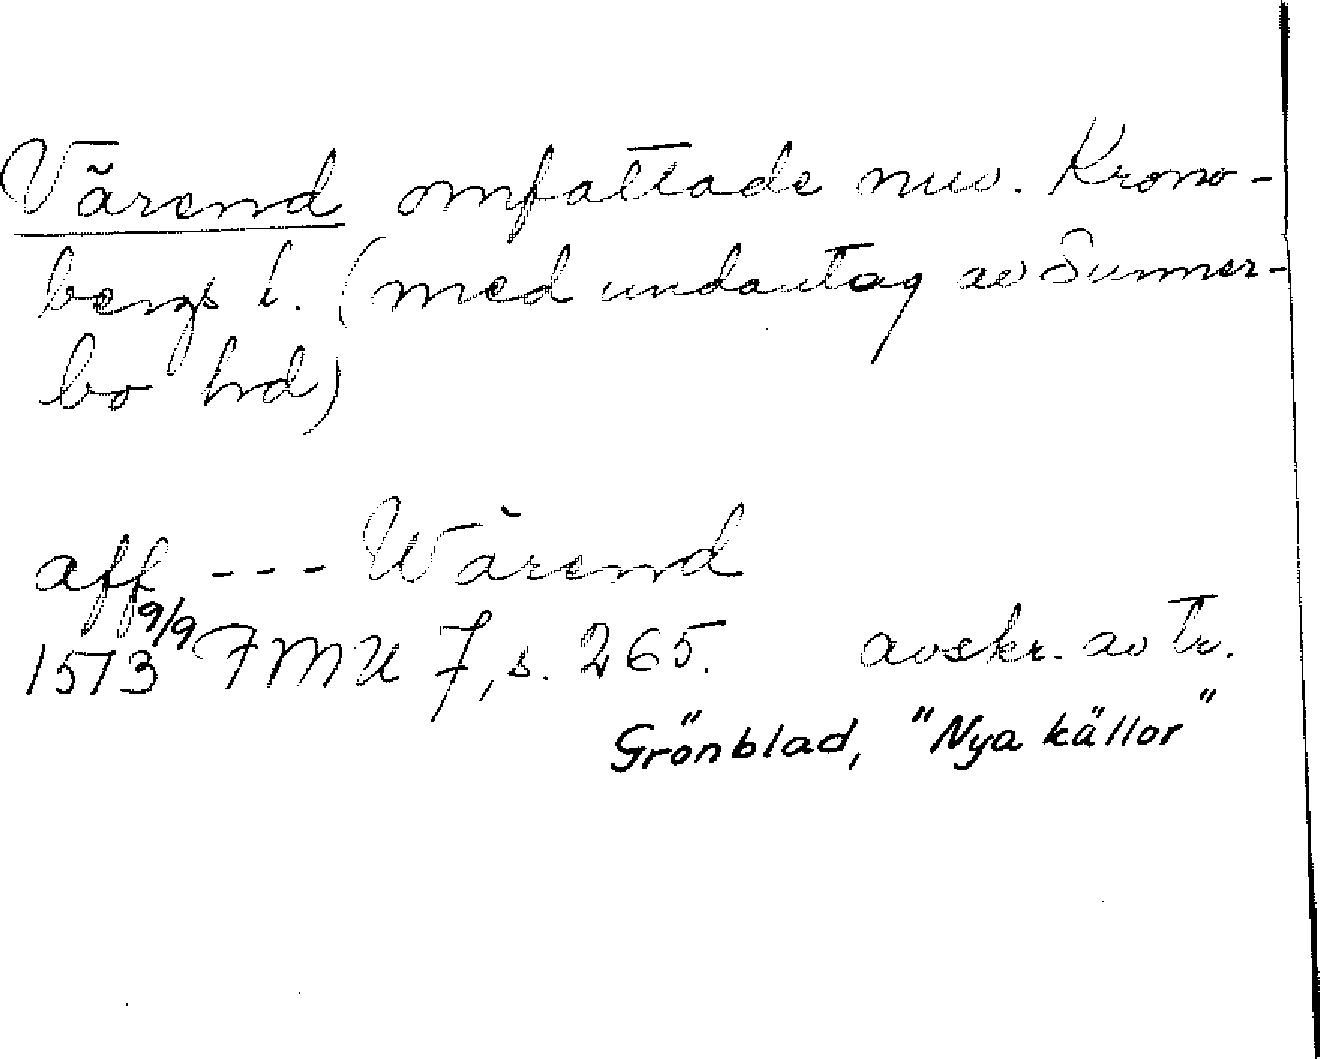 Värend omfattade nuv. Krono-
bergs l. (med undantag av Sunner-
bo hrd)
aff --- Wärend
1573 9/9 FMU 7, s. 265. avskr. av tr.
Grönblad, "Nya källor"